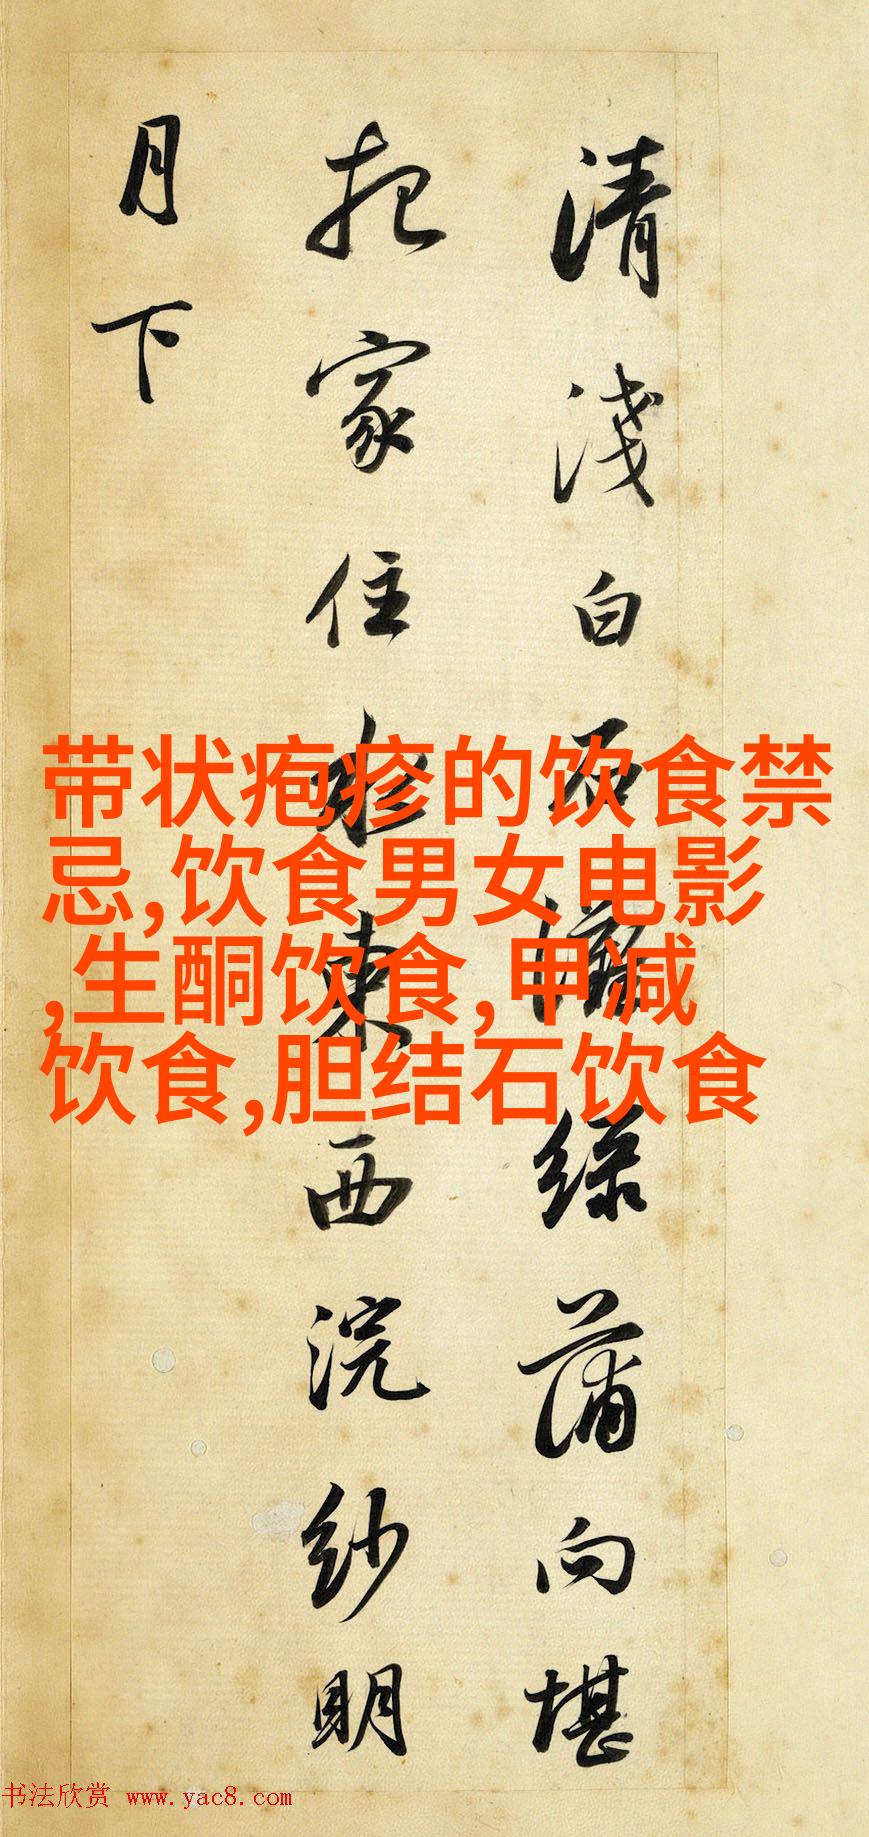 清淺白石灘綠蒲向堪
把家住水東西浣紗明
月下
带状疱疹的饮食禁
忌,饮食男女电影
,生酮饮食,甲减
饮食,胆结石饮食
书法欣赏 www.yac8.com